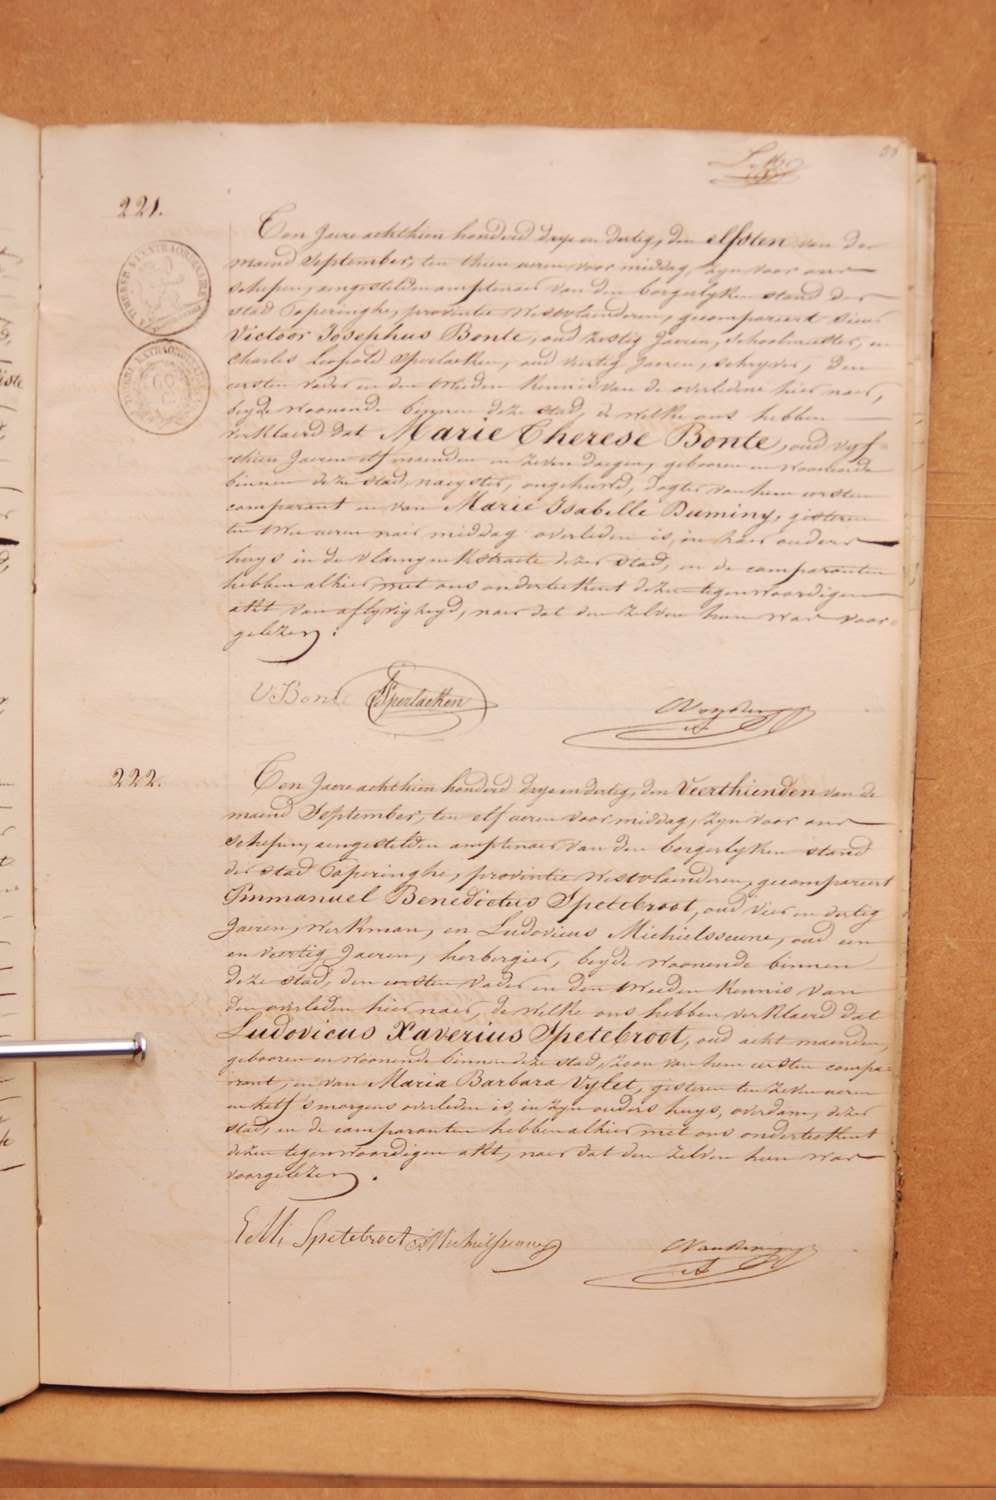 221.
Ten Jaere achthien honderd drye en dertig, den elfsten van de
maend September, ten thien ueren voor middag, zyn voor ons
schepen, aengestelden amptenaer van den borgerlyken stand der
stad Poperinghe, provintie Westvlaenderen, gecompareert sieur
Victoor Josephus Bonte, oud zestig Jaeren, schoolmeester, en
Charles Leopold Sperlaeken, oud veertig Jaeren, schryver, den
eersten vader en den tweeden kennis van de overledene hier naer,
beyde woonende binnen deze stad, de welke ons hebben
verklaerd dat Marie Therese Bonte, oud vyf-
thien Jaeren elf maenden en zeven daegen, gebooren en woonende
binnen deze stad, naeyster, ongehuwd, dogter van hem eersten
comparant en van Marie Isabelle Duminy, gisteren
ten twee ueren naer middag overleden is, in haer ouders
huys in de vlamynckstraete dezer stad, en de comparanten
hebben alhier met ons onderteekent dezen tegenwoordigen
akt van aflyvigheyd, naer dat den zelven hun was voor-
gelezen.
V Bonte Sperlaeken
222.
Ten Jaere achthien honderd drye en dertig, den Veerthienden van de
maend September, ten elf ueren voor middag, zyn voor ons
schepen, aengestelden amptenaer van den borgerlyken stand
der stad Poperinghe, provintie Westvlaenderen, gecompareert
Emmanuel Benedictus Spetebroot, oud vier en dertig
Jaeren, werkman, en Ludovicus Michielssoune, oud een
en veertig Jaeren, herbergier, beyde woonende binnen
deze stad, den eersten vader en den tweeden kennis van
den overleden hier naer, de welke ons hebben verklaerd dat
Ludovicus Xaverius Spetebroot, oud acht maenden,
gebooren en woonende binnen deze stad, zoon van hem eersten compa-
rant, en van Maria Barbara Vylet, gisteren ten zeven ueren
en half 's morgens overleden is, in zyn ouders huys, overdam, dezer
stad, en de comparanten hebben alhier met ons onderteekent
dezen tegenwoordigen akt, naer dat den zelven hun was
voorgelezen.
Spetebroot